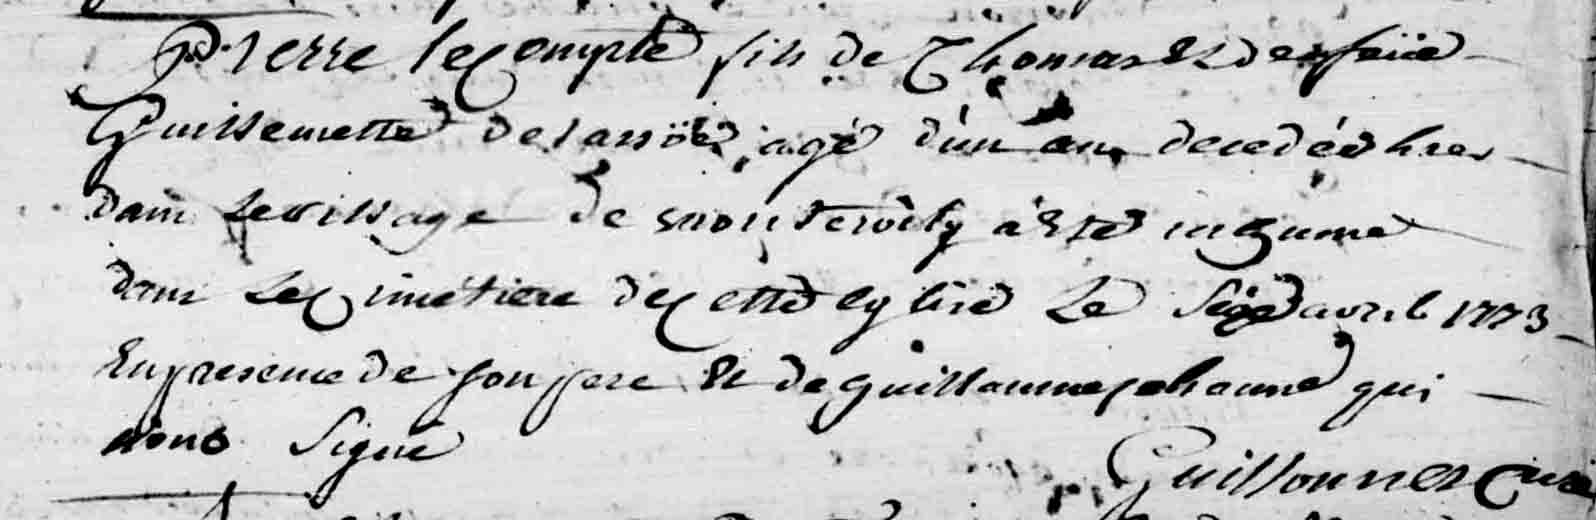 Pierre lecompte fils de Thomas et de feüe
Guillemette agé d'un an decedé hier
dans le village de a été inhumé
dans le cimetiere de cette eglise le avril 1773
En presence de son pere et de guillaume qui
n'ont signé
Curé